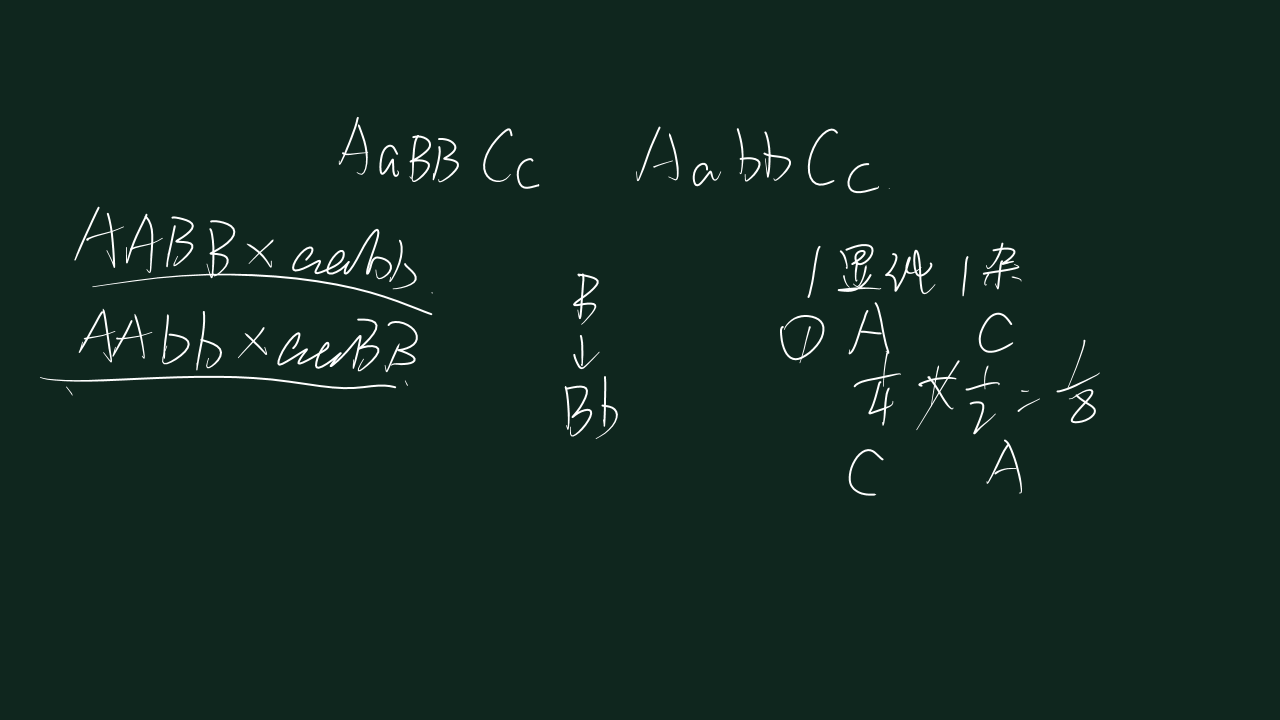 AaBBCc AabbCc
AABB×aabb
AAbb×aaBB
B
↓
Bb
1显纯1杂
① A C
1/4 × 1/2 = 1/8
C A